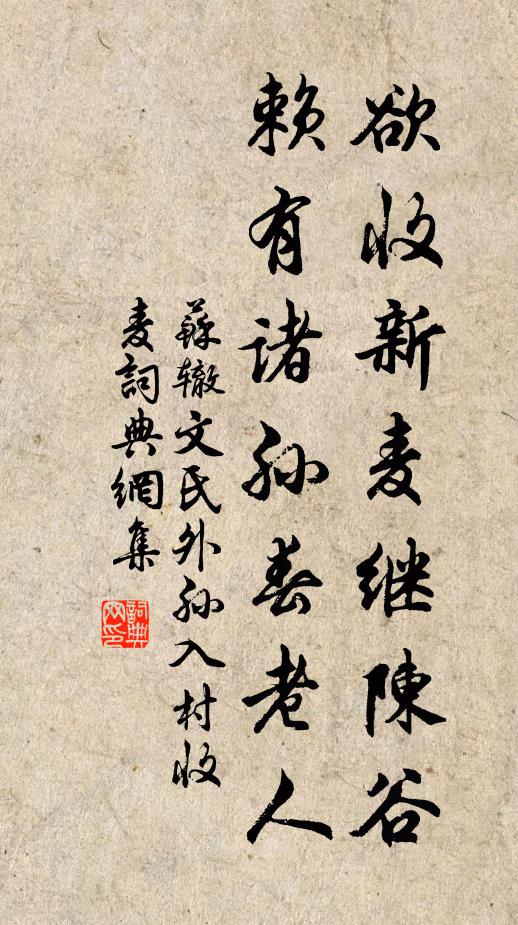 欲收新麦继陳谷
赖有诸孙替老人
蘇辙文氏外孙入村收
麦詞典網集
詞典网印